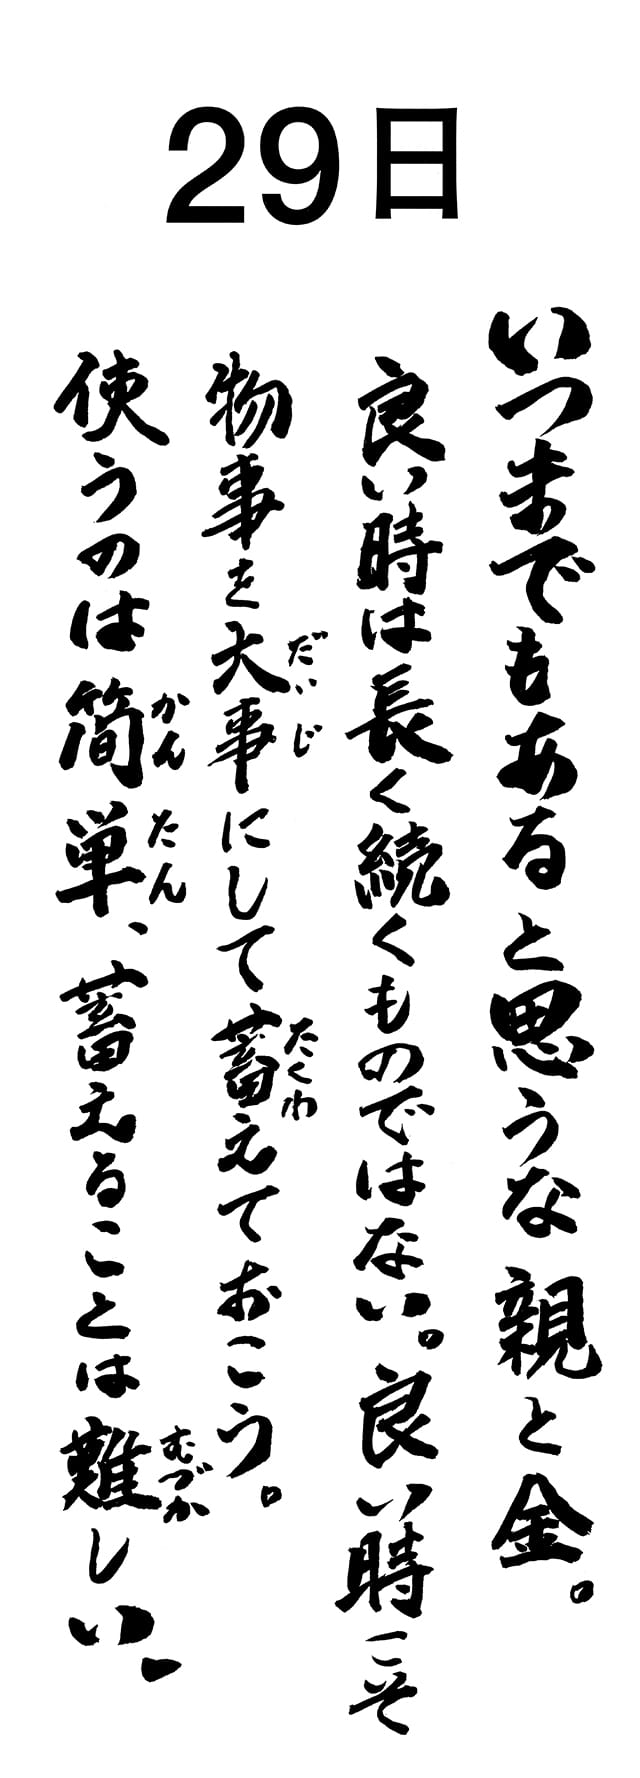 29日
いつまでもあると思うな親と金。
良い時は長く続くものではない。良い時こそ
物事を大事にして蓄えておこう。
だいじ
たくわ
使うのは簡単、蓄えることは難しい、
かんたん
むづか